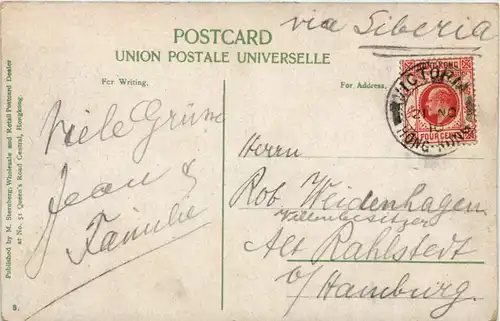 via Siberia
POSTCARD
UNION POSTALE UNIVERSELLE
For Writing.
For Address.
HONG KONG
FOUR CENTS
VICTORIA
HONG-KONG
Viele Grüsse
Jean &
Familie
Herrn
Rob. Weidenhagen
Villenbesitzer
Alt Rahlstedt
b/Hamburg.
Published by M. Sternberg; Wholesale and Retail Postcard Dealer
at No. 51 Queen's Road Central, Hongkong
8.